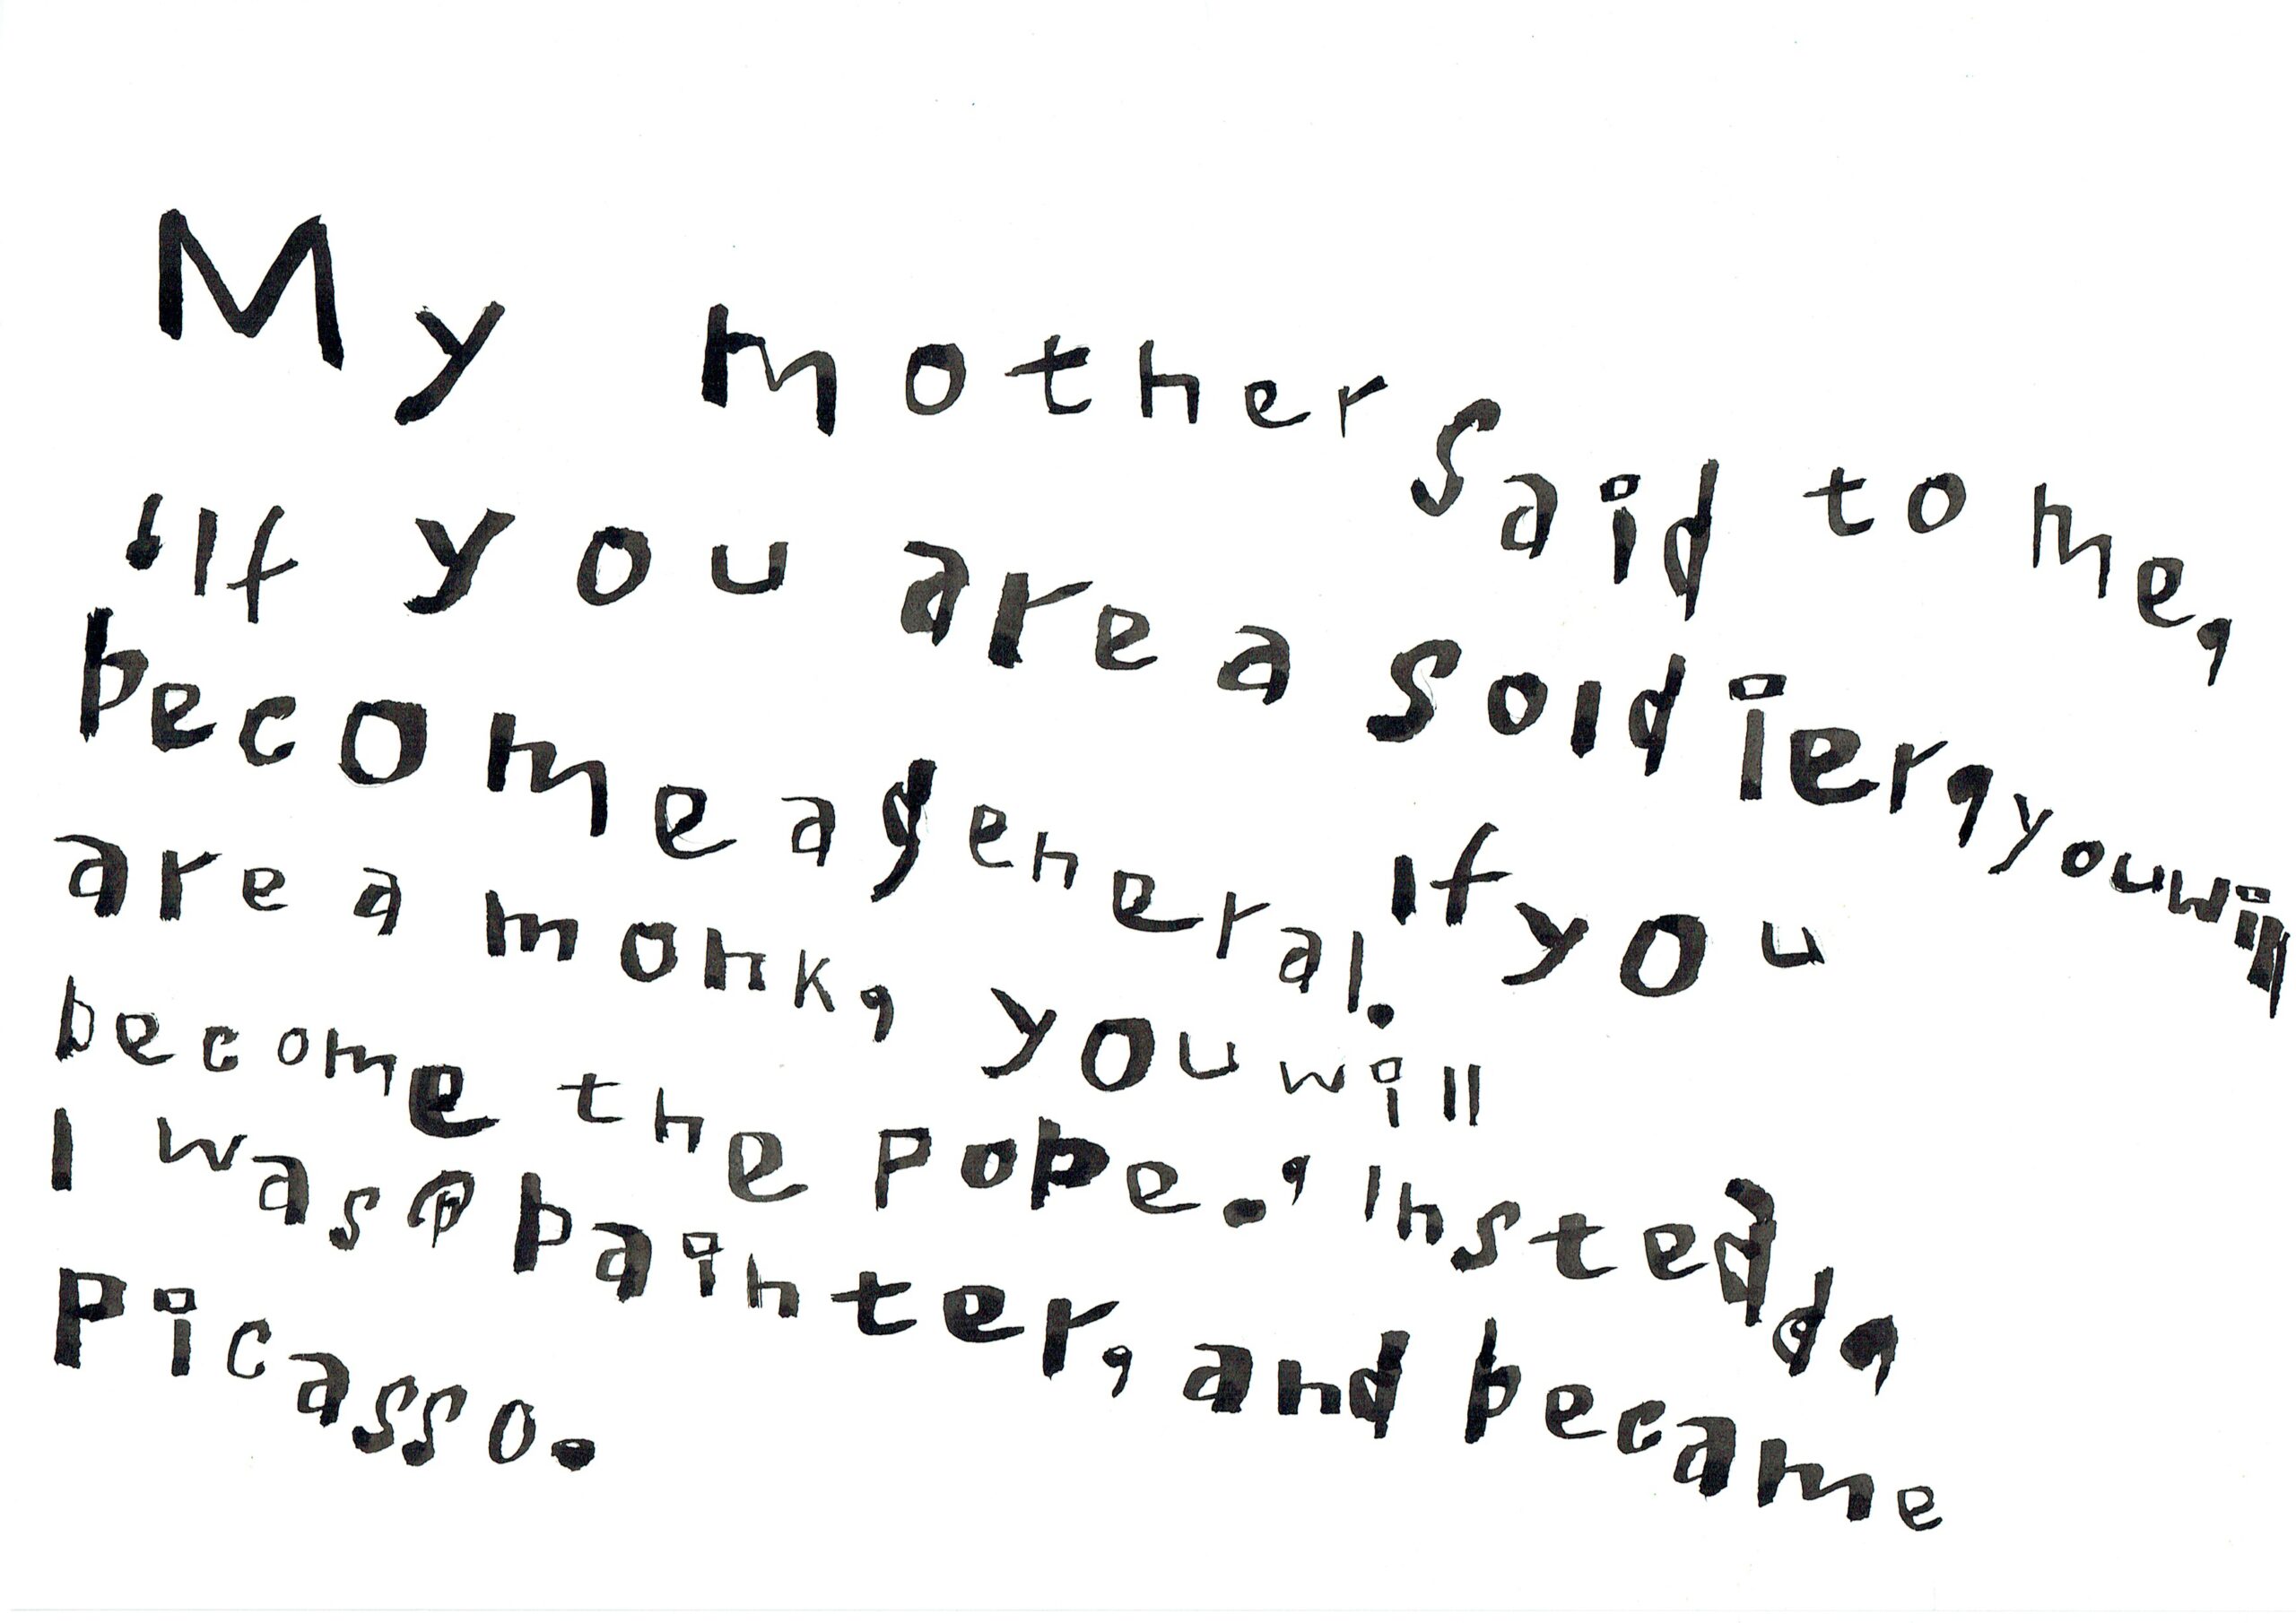 My mother said to me,
‘If you are a soldier, you will
become a general. If you
are a monk, you will
become the pope.’ Instead,
I was a painter, and became
Picasso.